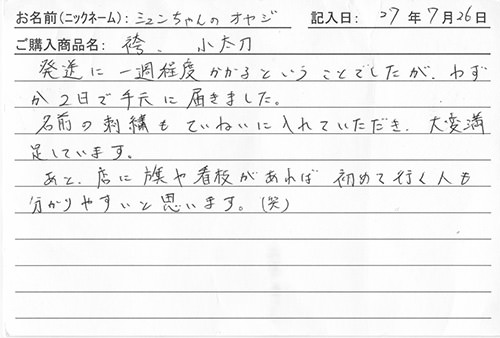 お名前(ニックネーム): シュンちゃんのオヤジ 記入日: 27年7月26日
ご購入商品名: 袴、小太刀
発送に一週程度かかるということでしたが、わず
か2日で手元に届きました。
名前の刺繍もていねいに入れていただき、大変満
足しています。
あと、店に旗や看板があれば 初めて行く人も
分かりやすいと思います。(笑)